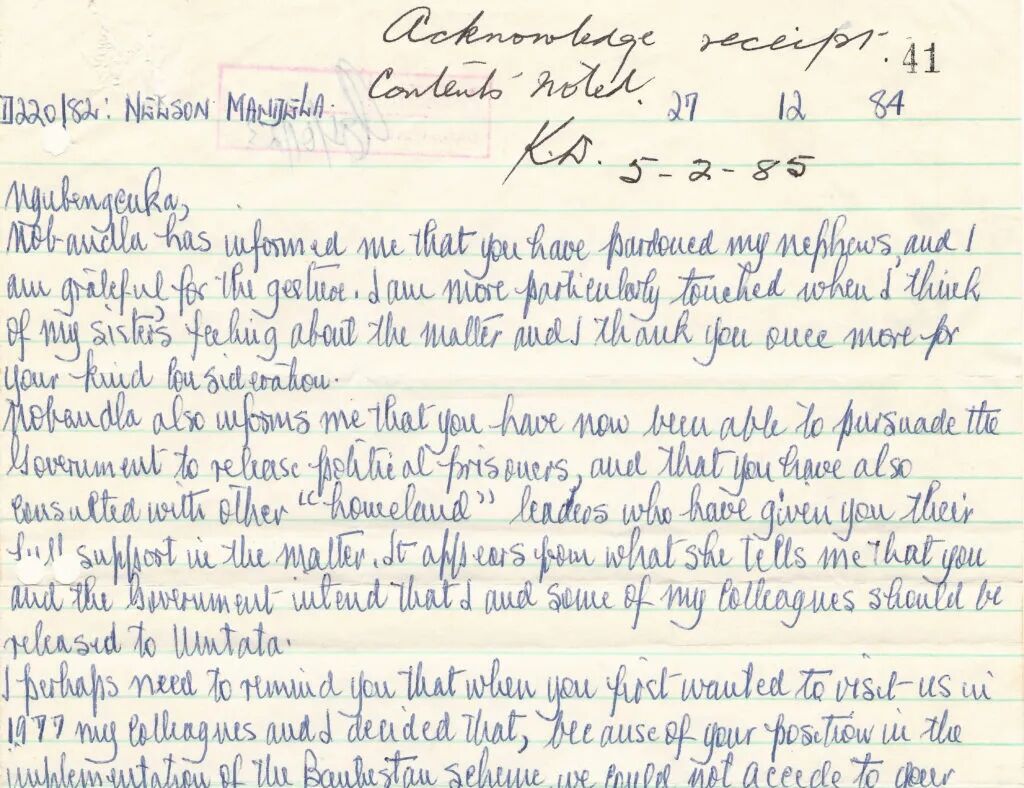 Acknowledge receipt.
41
Contents noted.
D220/82: NELSON MANDELA.
27 12 84
K.D. 5-2-85
Ngubengcuka,
Nobandla has informed me that you have pardoned my nephews, and I
am grateful for the gesture. I am more particularly touched when I think
of my sister's feeling about the matter and I thank you once more for
your kind consideration.
Nobandla also informs me that you have now been able to pursuade the
Government to release political prisoners, and that you have also
consulted with other "homeland" leaders who have given you their
full support in the matter. It appears from what she tells me that you
and the Government intend that I and some of my colleagues should be
released to Umtata.
I perhaps need to remind you that when you first wanted to visit us in
1977 my colleagues and I decided that, because of your position in the
implementation of the Bantustan scheme, we could not accede to your